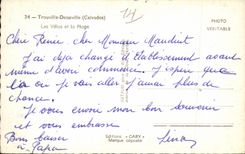 34 - Trouville-Deauville (Calvados)
Les Villas et la Plage
PHOTO
VERITABLE
14
Chère Renée cher Monsieur Mauduit
J'ai déjà changé d'Etablissement avant
même d'avoir commencé. J'espère que
là où je vais aller j'aurai plus de
chance.
Je vous envoie mon bon souvenir
et vous embrasse
Bons baisers
à Papa
Editions "CABY"
Marque déposée